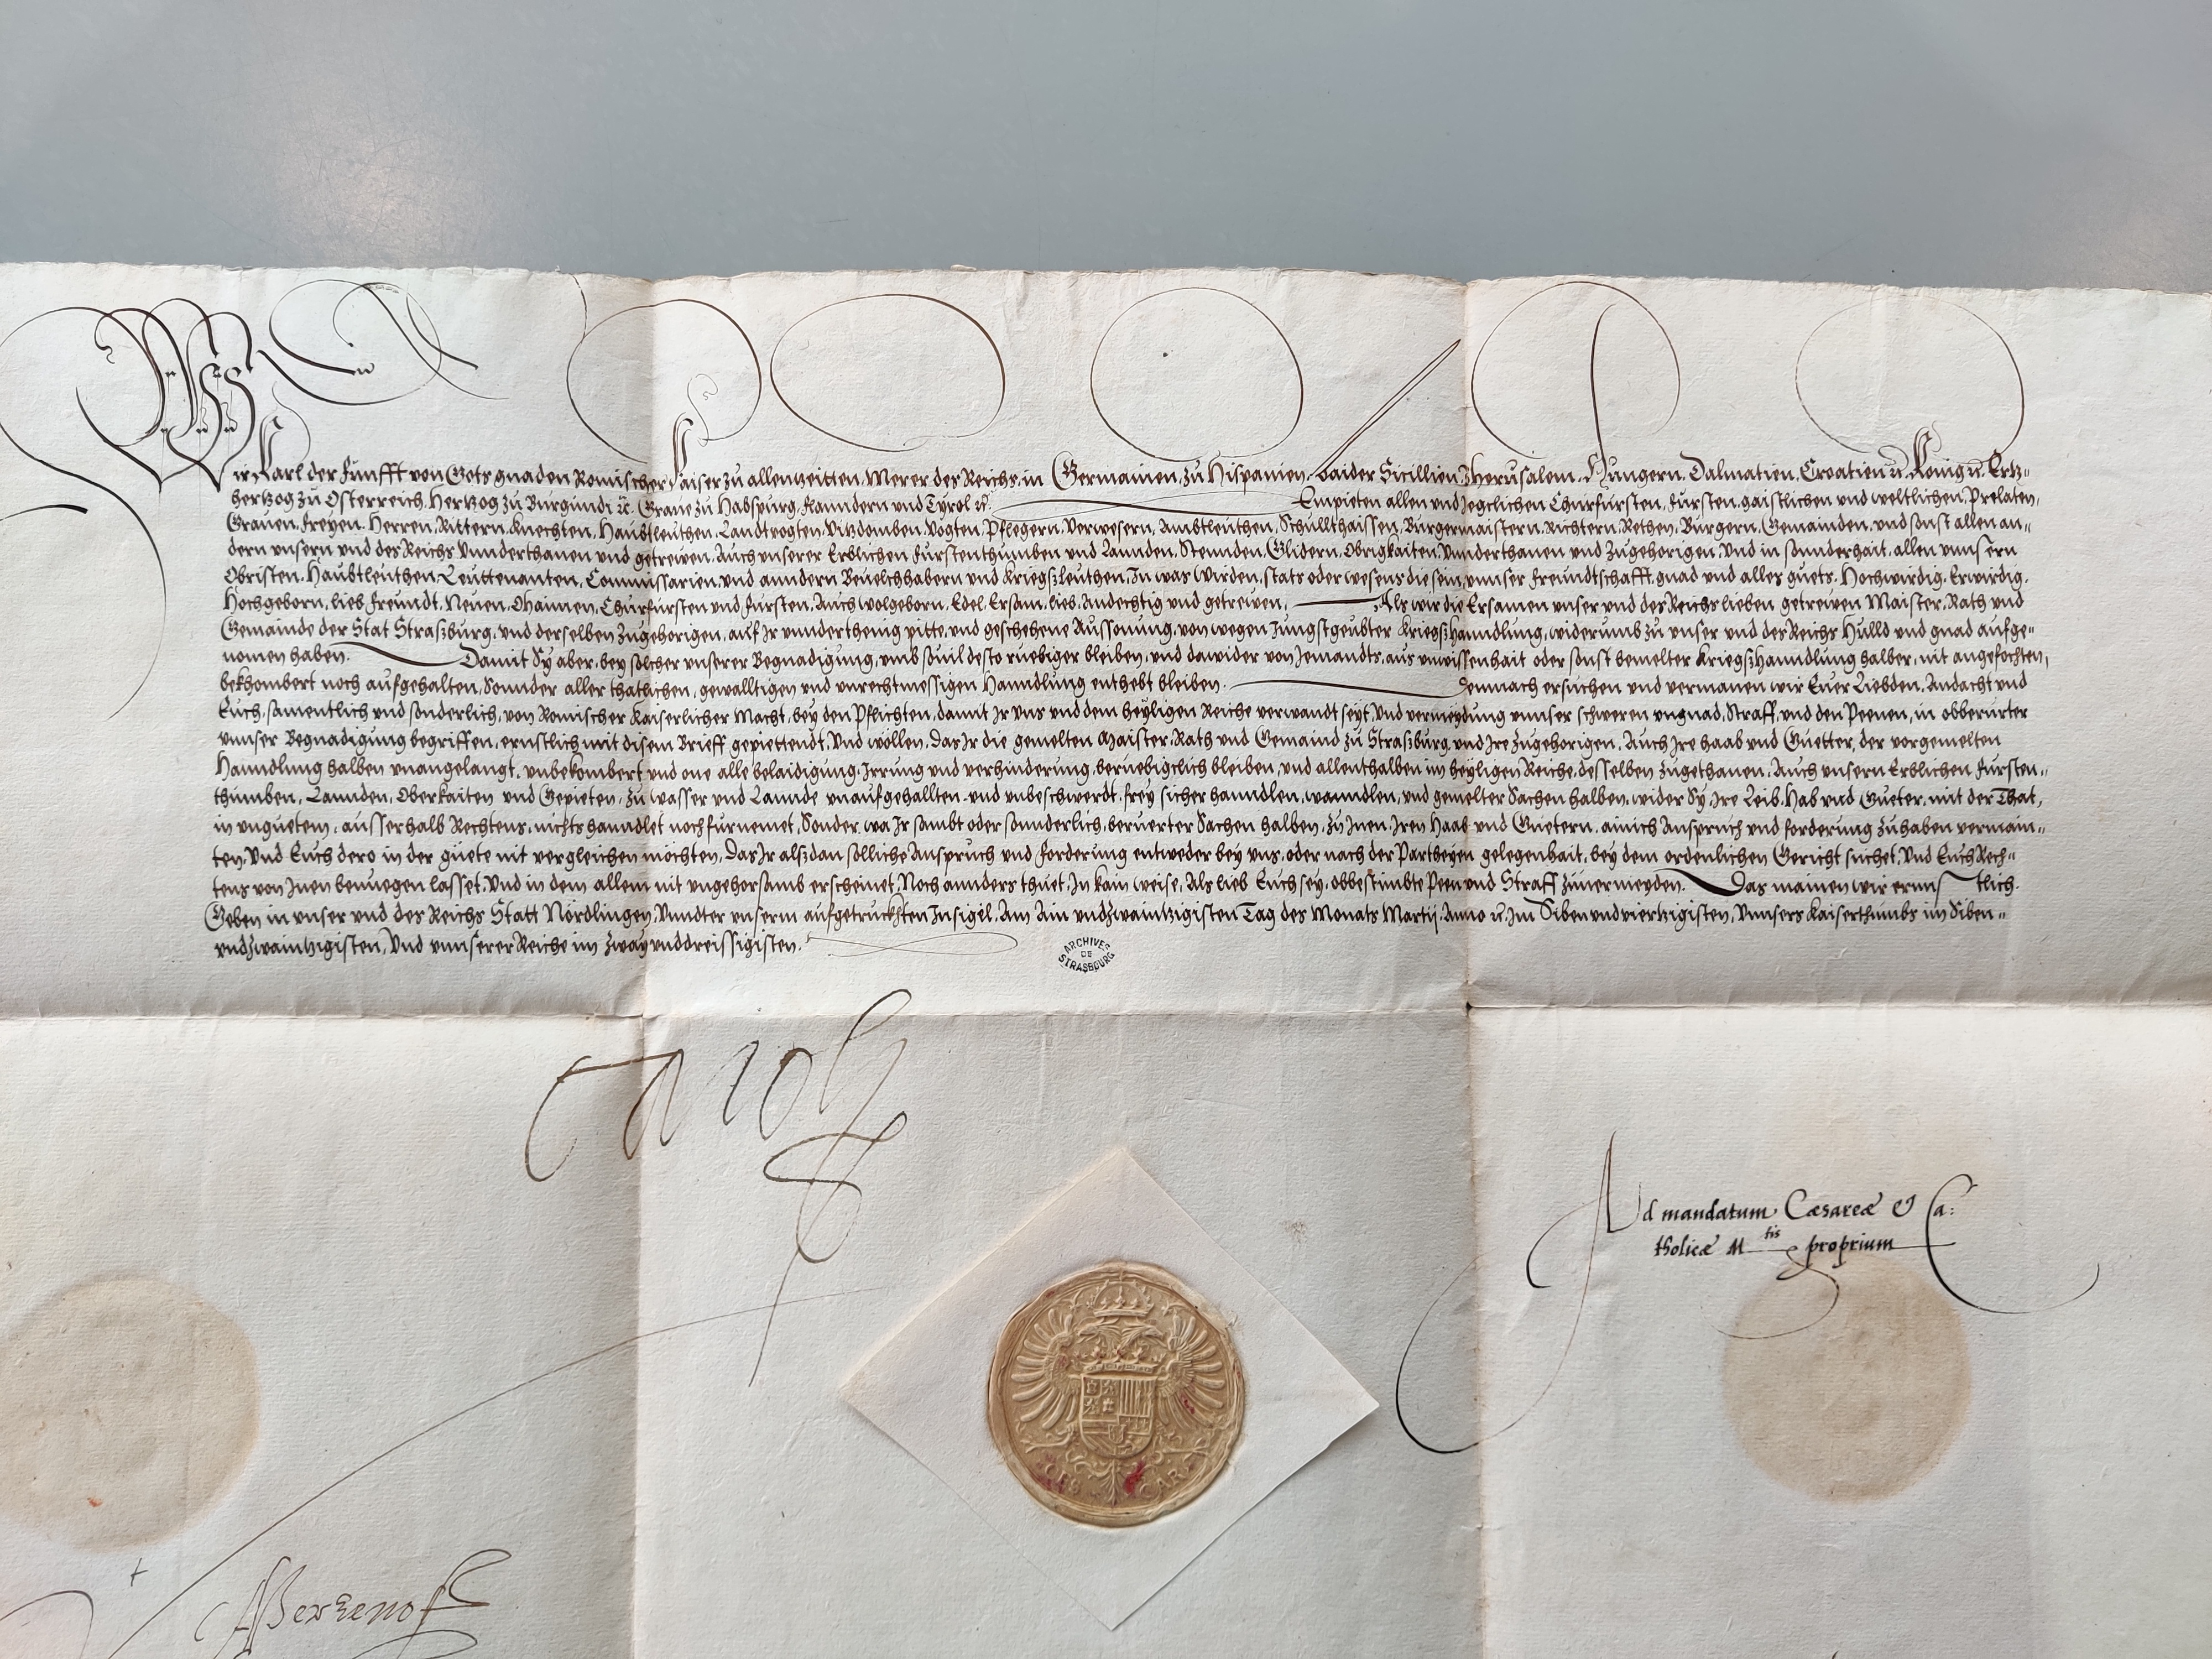 Wir Karl der Funfft von Gots gnaden Romischer Kaiser zu allenzeitten, Merer des Reichs, in Germanien, zu Hispanien, baider Sicillien, Jherusalem, Hungern, Dalmatien, Croatien ꝛc. König ꝛc. Ertz=
hertzog zu Osterreich, Hertzog zu Burgundi ꝛc. Graue zu Habspurg, Flanndern vnd Tyrol ꝛc. Empieten allen und Jegclichen Churfursten, Fürsten, gaistlichen und weltlichen, Prelaten,
Grauen, Freyen, Herren, Rittern, Knechten, Haubtleuthen, Landtvogten, Vitzdomben, Vogten, Pflegern, Verwesern, Ambtleuthen, Schullthaissen, Burgermaistern, Richtern, Rethen, Burgern, Gemainden, und sonst allen an=
dern unsern und des Reichs Vnnderthanen und getrewen, Auch unserer Erblichen Furstenthumben und Lannden, Stennden, Glidern, Obrigkaiten, Vnnderthanen und Zugehorigen, Und in sonnderhait, allen vnnsern
Obristen, Haubtleuthen, Leuttenanten, Commissarien, und anndern Beuelchhabern und Kriegszleuthen, In was Wirden, stats oder wesens die sein, vnnser freundtschafft, gnad und alles guets, Hochwirdig, Erwirdig,
Hochgeborn, lieb Freundt, Neuen, Ohaimen, Churfursten und Fursten, Auch wolgeborn, Edel, Ersam, lieb, Andechtig und getrewen, Als wir die Ersamen unser und des Reichs lieben getrewen Maister, Rath und
Gemainde der Stat Straßburg, und derselben Zugehorigen, auf Ir vnnderthenig pitte, und geschehene Aussonung, von wegen Jungstgeubter Kriegszhanndlung, widerumb zu unser und des Reichs Hulld und gnad aufge=
nomen haben. Damit Sy aber, bey solcher unserer Begnadigung, umb souil desto ruebiger bleiben, und dawider von Jemandts, aus unwissenhait oder sonst bemelter Kriegszhanndlung halber, nit angefochten,
bekhombert noch aufgehalten, Sonnder aller thatlichen, gewalltigen und unrechtmessigen Hanndlung enthebt bleiben. Demnach ersuchen und vermanen wir Euer Liebden, Andacht und
Euch, samentlich und sonderlich, von Romischer Kaiserlicher Macht, bey den Pflichten, damit Ir vns vnd dem heyligen Reiche verwandt seyt, Und vermeydung vnnser schweren ungnad, Straff, und den Peenen, in obberürter
vnnser Begnadigung begriffen, ernstlich mit disem Brieff gepiettendt, Und wöllen, Das Ir die gemelten Maister, Rath und Gemaind zu Straßburg, und Ire zugehorigen, Auch Ire haab und Guetter, der vorgemelten
Hanndlung halben unangelangt, unbekombert und one alle belaidigung, Irrung und verhinderung, beruebigclich bleiben, und allenthalben im heyligen Reiche, desselben zugethanen, Auch unsern Erblichen Fursten=
thumben, Lannden, Oberkaiten und Gepieten, zu wasser und Lannde unaufgehallten und unbeschwerdt, frey sicher hanndlen, wanndlen, und gemelter Sachen halben, wider Sy, Ire Leib, Hab und Gueter, mit der That,
in unguetem, ausserhalb Rechtens, nichts hanndlet noch furnemet, Sonder, wa Ir sambt oder sonnderlich, beruerter Sachen halben, zu Inen, Iren Haab und Guetern, ainich Anspruch und forderung zuhaben vermain=
ten, Und Euch dero in der guete nit vergleichen möchten, Das Ir alszdan solliche Anspruch und Forderung entweder bey uns, oder nach der Partheyen gelegenhait, bey dem ordenlichen Gericht suchet, Und Euch Rech=
tens von Inen benuegen lasset, Und in dem allem nit ungehorsamb erscheinet, Noch annders thuet, In kain weise, Als lieb Euch sey, obbestimbte Peen und Straff zuuermeyden. Das mainen wir ernnstlich.
Geben in unser und des Reichs Statt Nördlingen, Vnndter unserm aufgetruckhten Insigel, Am Ain undzwaintzigisten Tag des Monats Martij, Anno ꝛc. Im Siben undviertzigisten, Vnnsers Kaiserthumbs im Siben=
undzwaintzigisten, Und vnnserer Reiche im zway unddreissigisten.
ARCHIVES DE STRASBOURG
Carolus
Ad mandatum Cæsareæ & Ca:
tholicæ M tis proprium